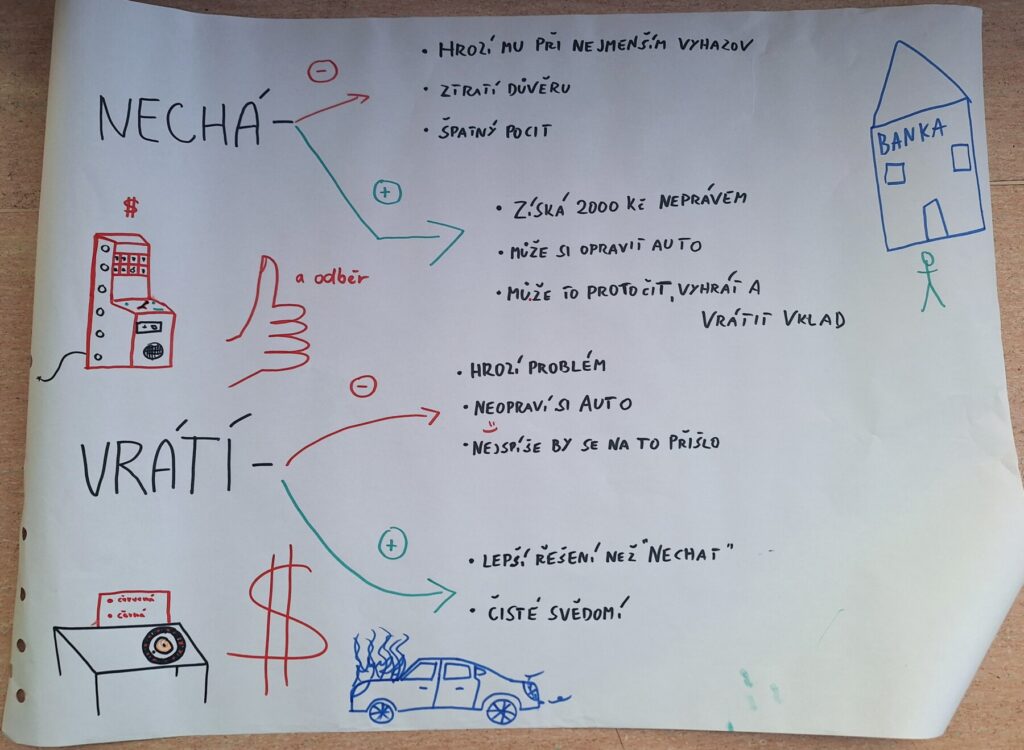 NECHÁ -
-
• HROZÍ MU PŘI NEJMENŠÍM VYHAZOV
• ZTRATÍ DŮVĚRU
• ŠPATNÝ POCIT
+
• ZÍSKÁ 2000 Kč NEPRÁVEM
• MŮŽE SI OPRAVIT AUTO
• MŮŽE TO PROTOČIT, VYHRÁT A
VRÁTIT VKLAD
BANKA
$
a odběr
VRÁTÍ -
-
• HROZÍ PROBLÉM
• NEOPRAVÍ SI AUTO
• NEJSPÍŠE BY SE NA TO PŘIŠLO
+
• LEPŠÍ ŘEŠENÍ NEŽ "NECHAT"
• ČISTÉ SVĚDOMÍ
• červená
• černá
$